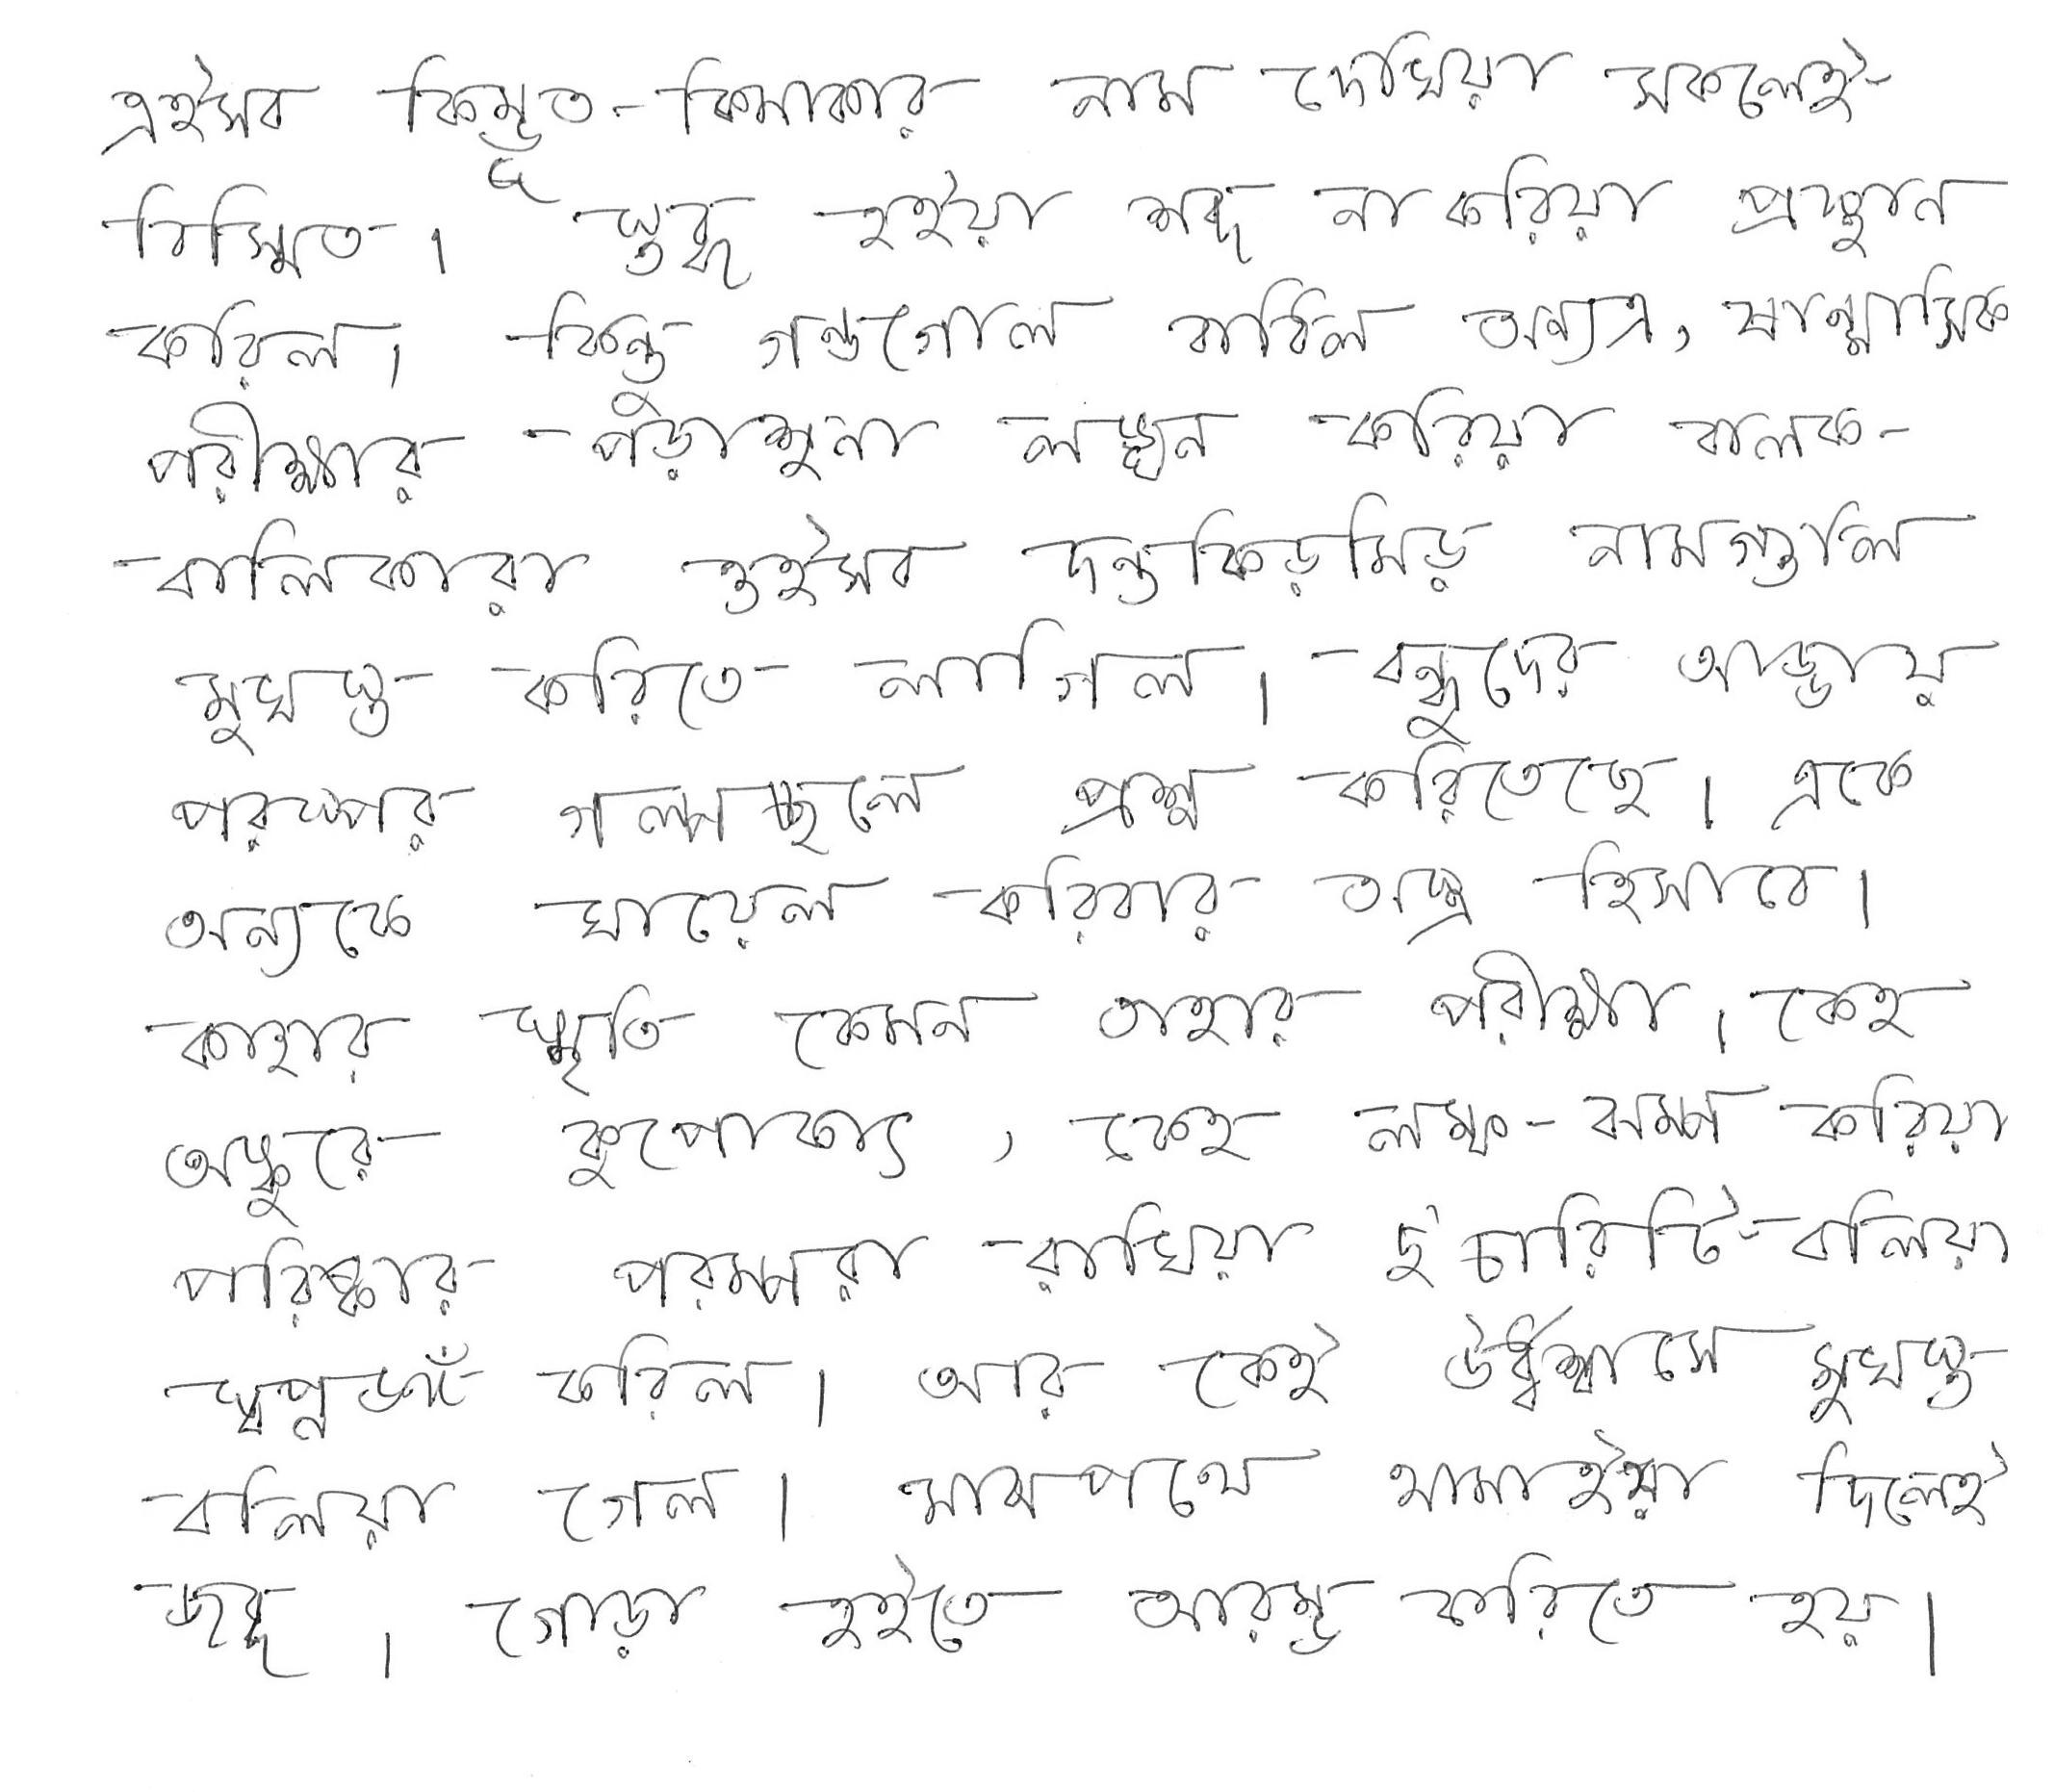 এইসব কিম্ভূত-কিমাকার নাম দেখিয়া সকলেই
বিস্মিত। স্তব্ধ হইয়া শব্দ না করিয়া প্রস্থান
করিল। কিন্তু গন্ডগোল বাধিল অন্যত্র, ষান্মাসিক
পরীক্ষার পড়াশুনা লঙ্ঘন করিয়া বালক-
বালিকারা ওইসব দন্তকিড়মিড় নামগুলি
মুখস্ত করিতে লাগিল। বন্ধুদের আড্ডায়
পরস্পর গল্পচ্ছলে প্রশ্ন করিতেছে। একে
অন্যকে ঘায়েল করিবার অস্ত্র হিসাবে।
কাহার স্মৃতি কেমন তাহার পরীক্ষা। কেহ
অঙ্কুরে কুপোকাৎ, কেহ লম্ফ-ঝম্প করিয়া
পরিষ্কার পরম্পরা রাখিয়া দু'চারিটি বলিয়া
স্বপ্নভঙ্গ করিল। আর কেহ ঊর্ধ্বশ্বাসে মুখস্ত
বলিয়া গেল। মাঝপথে থামাইয়া দিলেই
জব্দ। গোড়া হইতে আরম্ভ করিতে হয়।